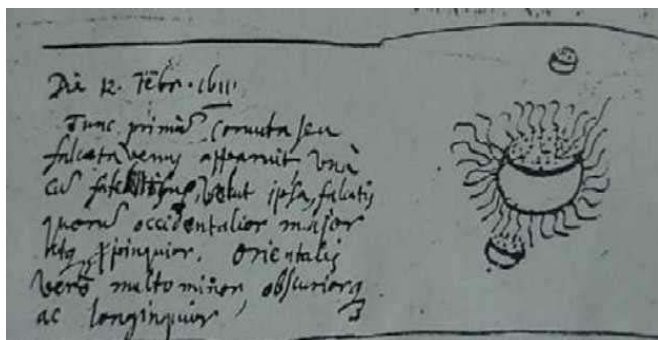 Die 12. Febr.
Tunc primũ Cornuta seu
falcata venus apparuit unà
cũ satellitibus, velut ipsa, falcatis
quorũ occidentalior major
atq propinquior. Orientalis
verò multo minor, obscuriorq
ac longinquior